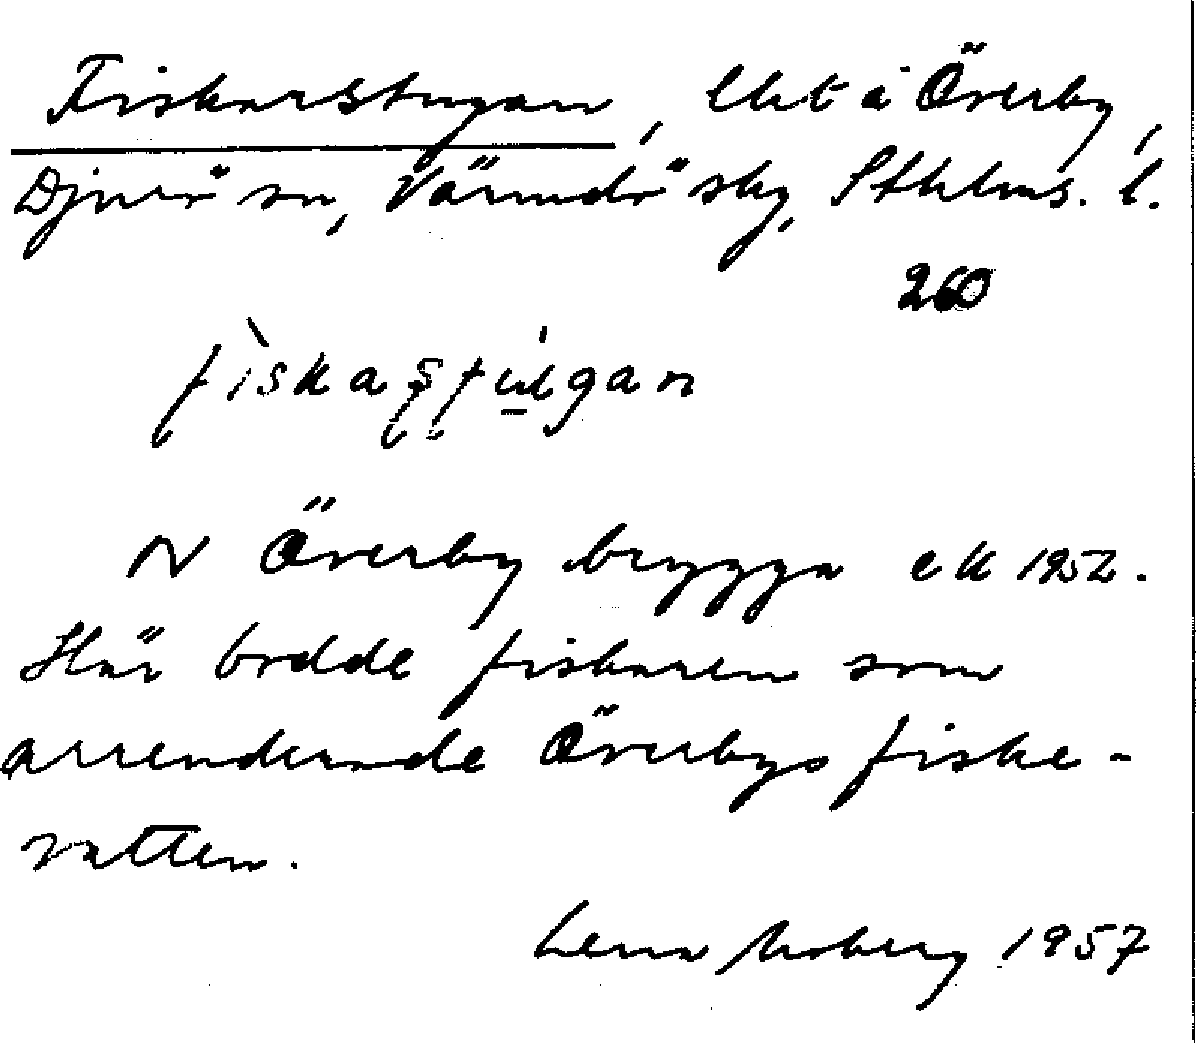 Fiskarstugan, lht å Överby,
Djurö sn, Värmdö skg, Sthlms. l.
260
fìskaștúgan
N Överby brygga ek 1952.
Här bodde fiskaren som
arrenderade Överbys fiske-
vatten.
Lena Moberg 1957